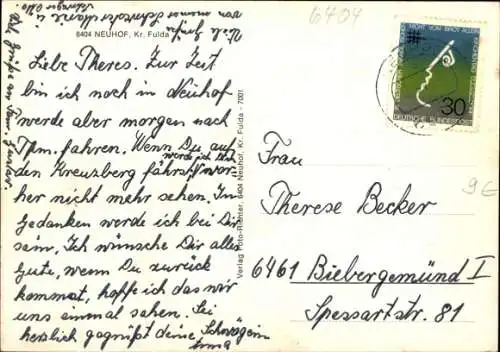 Viele Grüße
von unserer Schwester Maria u.
Schwager Otto.
6404 NEUHOF, Kr. Fulda
Liebe Theres. Zur Zeit
bin ich noch in Neuhof
werde aber morgen nach
fahren. Wenn Du auf
den Kreuzberg fährst werde ich Dich vor
her nicht mehr sehen. In
Gedanken werde ich bei Dir
sein. Ich wünsche Dir alles
Gute, wenn Du zurück
kommst, hoffe ich das wir
uns einmal sehen. Sei
herzlich gegrüßt deine Schwägerin
Irma
Grüße an Fam. Gustav
Verlag Foto-Richter, 6404 Neuhof, Kr. Fulda - 7001
6404
NICHT VOM BROT ALLEIN
30
DEUTSCHE BUNDESPOST
9E
Frau
Therese Becker
6461 Biebergemünd I
Spessartstr. 81